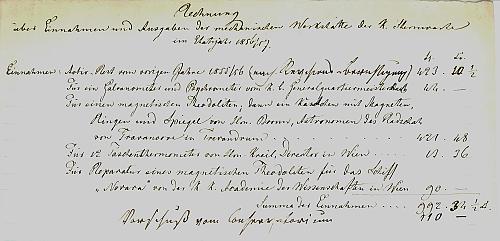 Rechnung
über Einnahmen und Ausgaben der mechanischen Werkstätte der K. Sternwarte
im Etatsjahr 1856/57.
fl. kr.
Einnahmen: Activ-Rest vom vorigen Jahre 1855/56 (nach Revisions-) 423. 10 ½
Für ein Galvanometer und Psychrometer vom K. C. Generalquartiermeisterstab 44. —
Für einen magnetischen Theodoliten, dann ein Kästchen mit Magneten,
Ringen und Spiegel von Hrn. Broun, Astronomen des Radschah
von Travancore in Trevandrum 421. 48
Für 12 Taschenthermometer von Hrn. Kreil, Director in Wien 13. 36
Für Reparatur eines magnetischen Theodoliten für das Schiff
"Novara" von der K. K. Academie der Wissenschaften in Wien 90. —
Summa der Einnahmen 992. 34 ½
Vorschuß vom Conservatorium 110 —